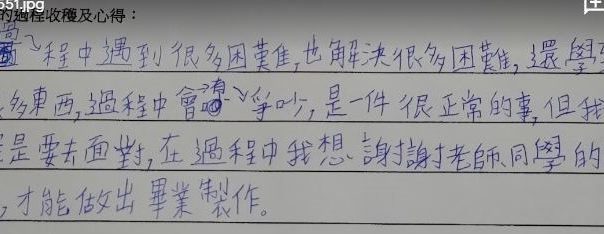 551.jpg
的過程收穫及心得：
過程中遇到很多困難,也解決很多困難,還學
多東西,過程中會有爭吵,是一件很正常的事,但我
是要去面對,在過程中我想謝謝老師、同學的
,才能做出畢業製作。